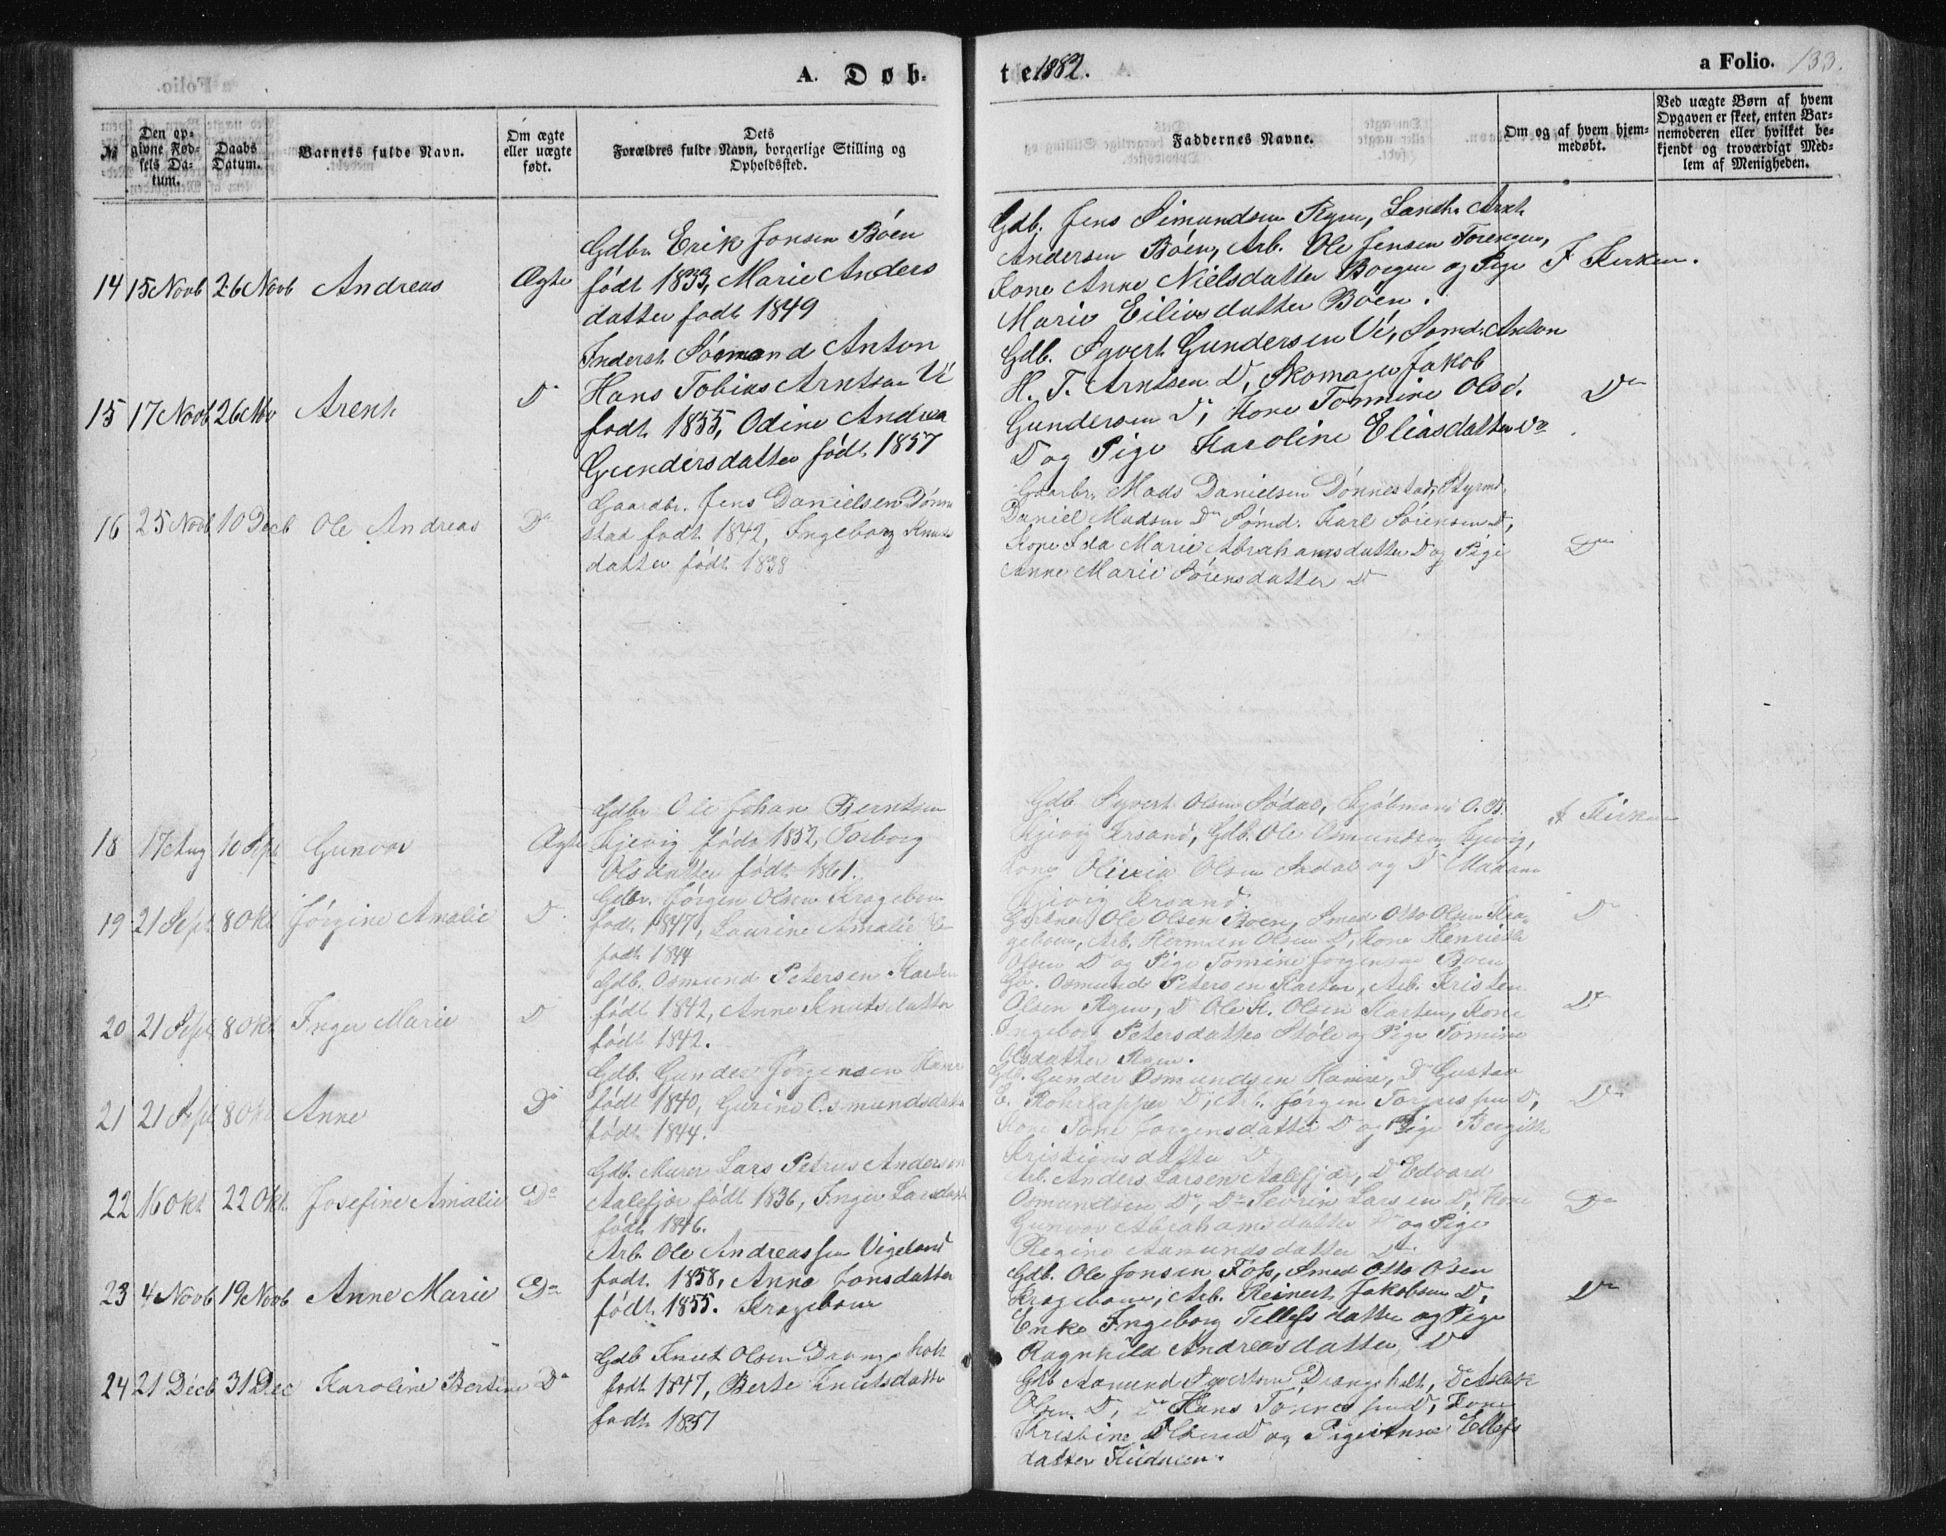 A. Døb-
te 1882.
a Folio. 133.
№
Den op-
givne Fød-
sels Da-
tum.
Daabs
Datum.
Barnets fulde Navn.
Om ægte
eller uægte
født.
Dets
Forældres fulde Navn, borgerlige Stilling og
Opholdssted.
Faddernes Navne.
Om og af hvem hjem-
medøbt.
Ved uægte Børn af hvem
Opgaven er skeet, enten Bar-
nemoderen eller hvilket be-
kjendt og troværdigt Med-
lem af Menigheden.
14 15 Novb 26 Novb Andreas Ægte
Gdbr Erik Jonsen Böen
født 1833, Marie Anders
datter født 1849
Gdb. Jens Simundsen Ryen,
Andersen Böen, Arb. Ole Jensen
Kone Anne Nielsdatter Boegen og Pige
Marie Eilivsdatter Böen.
I Kirken.
15 17 Novb 26 Nov Arent Do
Inderst Sömand Anton
Hans Tobias Arntsen Ve
født 1855, Odine Andrea
Gundersdatter født 1857
Gdb. Syvert Gundersen Ve, Sömd. Anton
H. T. Arntsen Do, Skomager Jakob
Gundersen Do, Kone Tomine Olsd.
Do og Pige Karoline Eliasdatter Do
Do
16 25 Novb 10 Decb Ole Andreas Do
Gaardbr. Jens Danielsen Dönne
stad født 1842, Ingeborg Knuds
datter født 1838
Gaarbr. Mads Danielsen Dönnestad, Styrmd.
Daniel Madsen Do Sömd. Karl Sörensen Do,
Kone Ida Marie Abrahamsdatter Do og Pige
Anne Marie Sörensdatter Do
Do
18 17 Aug 10 Sept Gunvor Ægte
Gdbr Ole Johan Berntsen
Kjevig født 1852, Torborg
Olsdatter født 1861.
Gdb Syvert Olsen Södal, O. B.
Kjevig Krsand, Gdb. Ole Osmundsen Kjevig,
Kone Olivia Olsen Södal og Do
Kjevig Krsand.
I Kirken
19 21 Sept 8 Okt Jörgine Amalie Do
Gdbr. Jörgen Olsen Krageboen
født 1847, Laurine Amalie
født 1844
Gartner Ole Olsen Boen, Smed Otto Olsen Kra-
geboen, Arb. Herman Olsen Do, Kone Henriette
Olsen Do og Pige Tomine Jörgensen Boen
Do
20 21 Sept 8 Okt Inger Marie Do
Gdb. Osmund Petersen Karten
født 1842, Anne Knutsdatter
født 1842.
Gb. Osmund Petersen Karten, Arb. Kristen
Olsen Ryen, Do Ole K. Olsen Karten, Kone
Ingeborg Petersdatter Stöle og Pige Tomine
Olsdatter Ryen.
Do
21 21 Sept 8 Okt Anne Do
Gdb. Gunder Jörgensen Hamre
født 1840, Gurine Osmundsdatter
født 1844.
Gdb. Gunder Osmundsen Hamre, Do Gustav
E. Do, Arb. Jörgen
Kone Tone Jörgensdatter Do og Pige Bergitte
Kristiansdatter Do
Do
22 16 Okt 22 Okt. Josefine Amalie Do
Gdb. Murer Lars Petrus Andersen
Aalefjær født 1836, Inger Larsdatter
født 1846.
Arb. Anders Larsen Aalefjær, Do Edvard
Osmundsen Do, Do Severin Larsen Do, Kone
Gunvor Abrahamsdatter Do og Pige
Regine Aamundsdatter Do.
Do
23 4 Novb 19 Novb Anne Marie Do
Arb. Ole Andreassen Vigeland
født 1858, Anna Jonsdatter
født 1855. Krageboen
Gdb. Ole Jonsen Foss, Smed Otto Olsen
Krageboen, Arb. Reinert Jakobsen Do,
Enke Ingeborg Tellefsdatter og Pige
Ragnhild Andreasdatter Do
Do
24 21 Decb 31 Dec Karoline Bertine Do
Gdb Knut Olsen Drangsholt
født 1847, Berte Knutsdatter
født 1851
Gdb Aamund Syvertsen Drangsholt, Do Aslak
Olsen Do, Do Hans Do, Kone
Kristine Do og Pige Anne Ellefs
datter